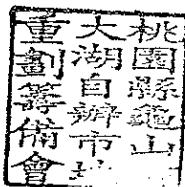 桃園縣龜山
大湖自辦市地
重劃籌備會